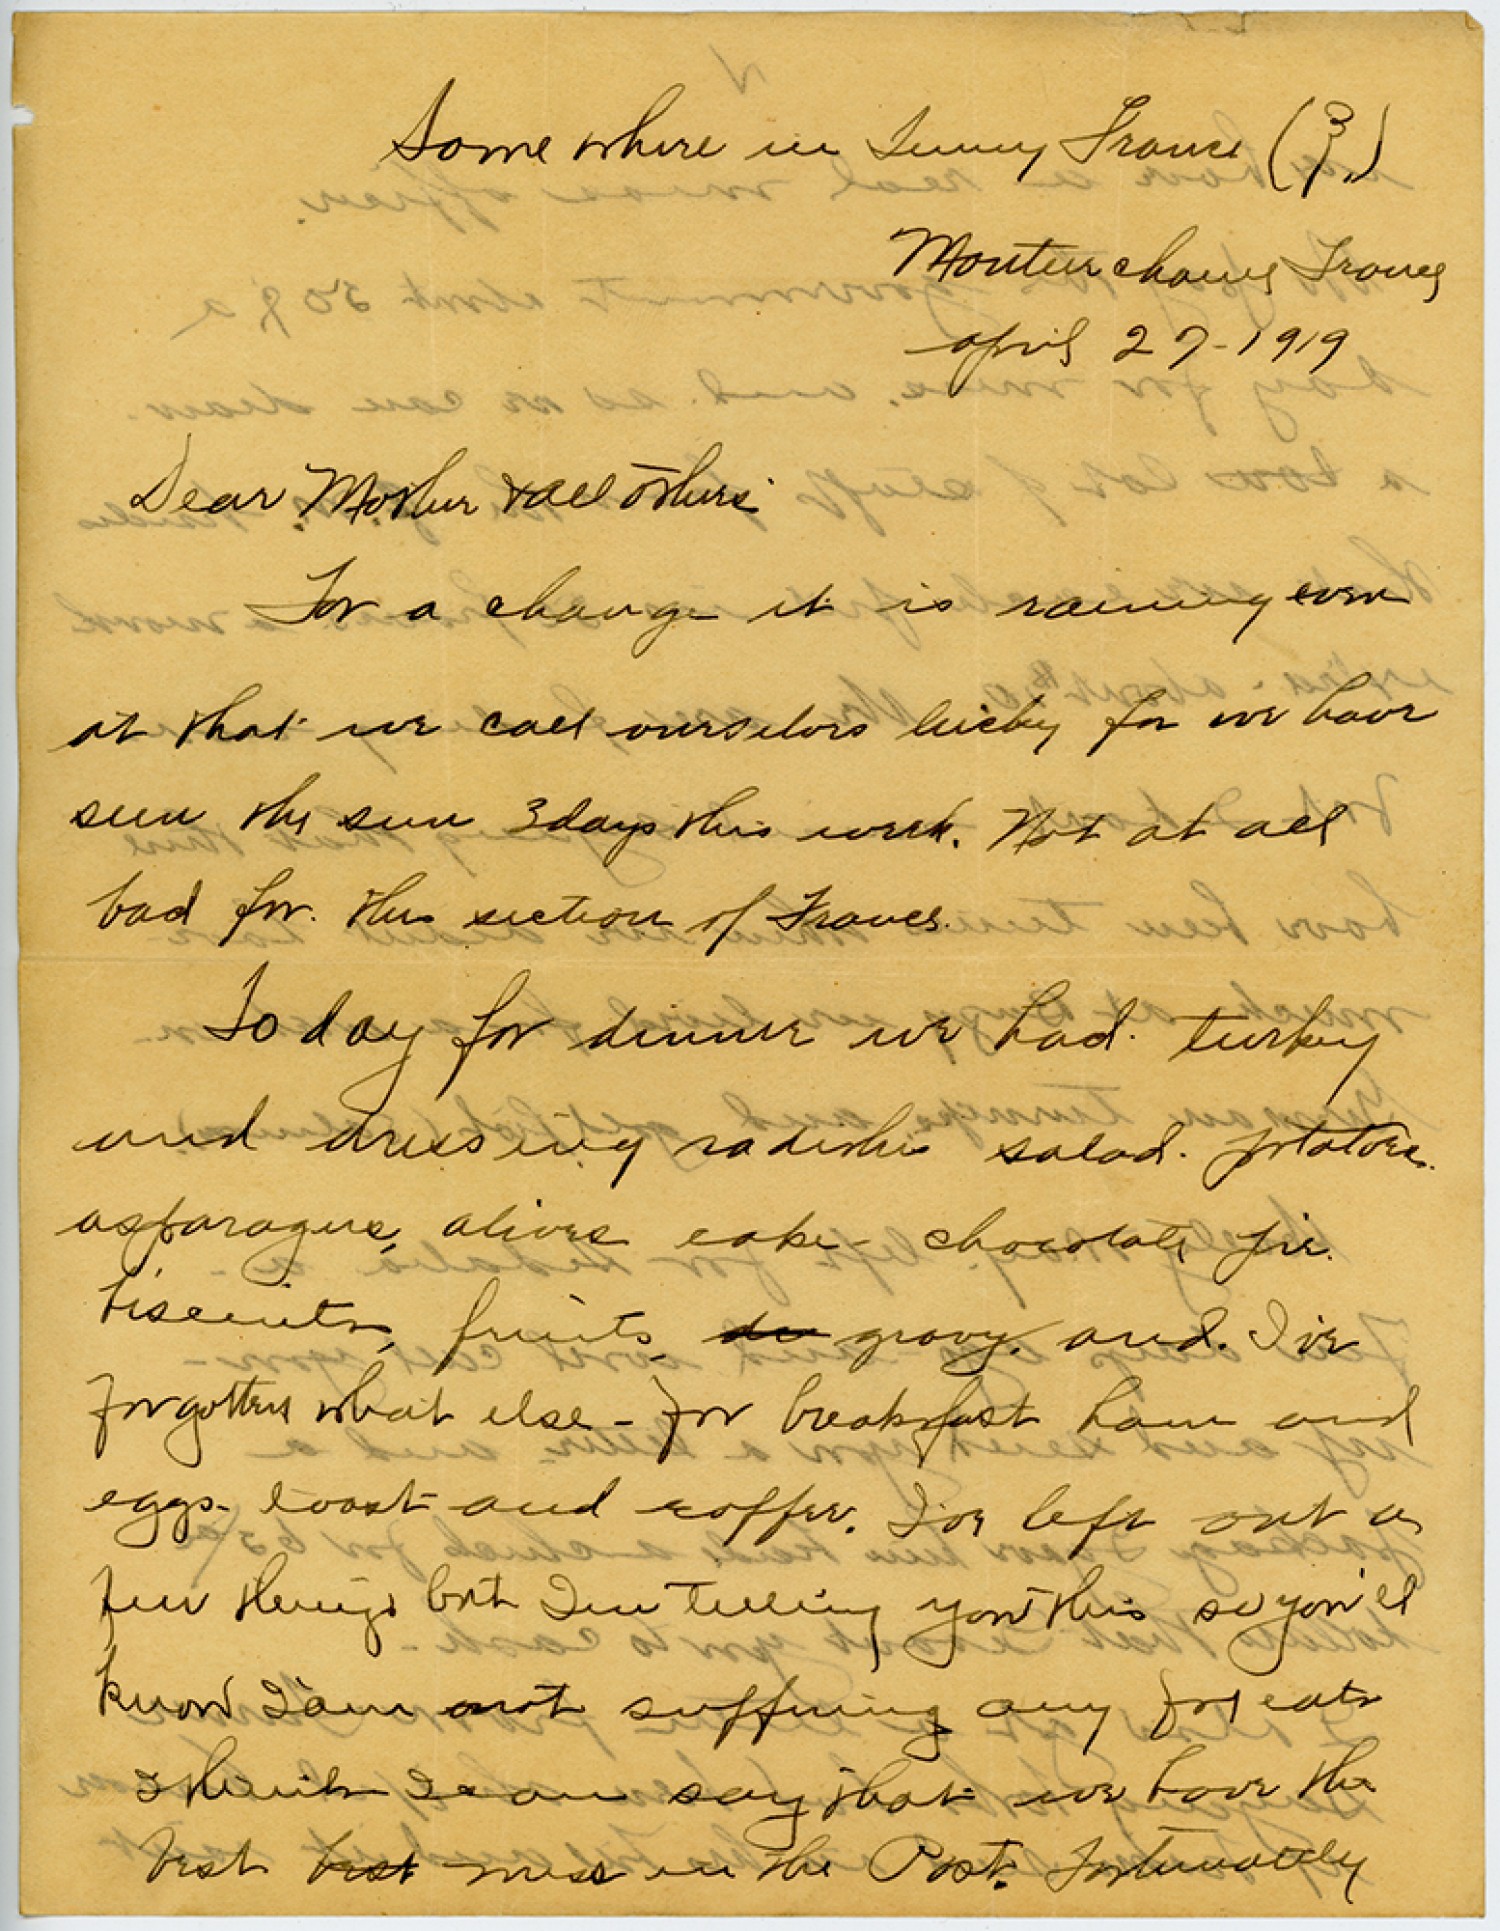 Somewhere in Sunny France (?)
France
April 27-1919
Dear Mother & all others:
For a change it is raining even
at that we call ourselves lucky for we have
seen the sun 3 days this week. Not at all
bad for this section of France.
Today for dinner we had turkey
and dressing radishes salad. potatoes.
asparagus, olives cake - chocolate pie.
biscuits, fruits, gravy. and. I've
forgotten what else - for breakfast ham and
eggs - toast and coffee. I've left out a
few things but I'm telling you this so you'll
know I am not suffering any for eats
I think I can say that we have the
best best mess in the Post. Fortunately